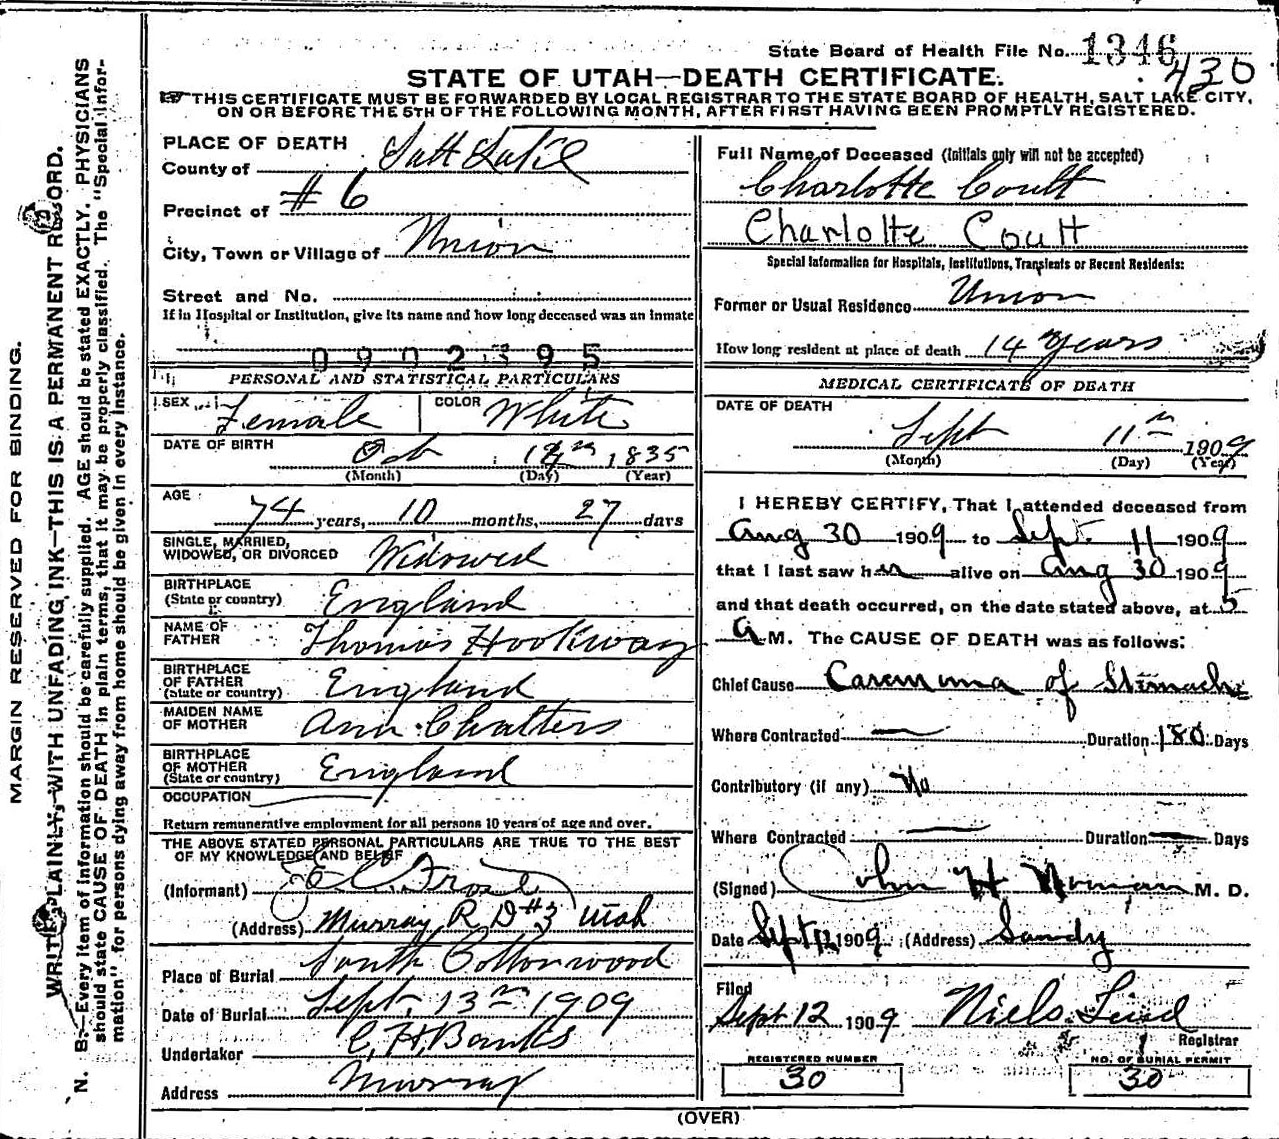 MARGIN RESERVED FOR BINDING.
WRITE PLAINLY, WITH UNFADING INK—THIS IS A PERMANENT RECORD.
N. B.—Every item of information should be carefully supplied. AGE should be stated EXACTLY. PHYSICIANS
should state CAUSE OF DEATH in plain terms, that it may be properly classified. The "Special Infor-
mation" for persons dying away from home should be given in every instance.
State Board of Health File No. 1346
430
STATE OF UTAH—DEATH CERTIFICATE.
THIS CERTIFICATE MUST BE FORWARDED BY LOCAL REGISTRAR TO THE STATE BOARD OF HEALTH, SALT LAKE CITY,
ON OR BEFORE THE 5TH OF THE FOLLOWING MONTH, AFTER FIRST HAVING BEEN PROMPTLY REGISTERED.
PLACE OF DEATH
County of Salt Lake
Precinct of # 6
City, Town or Village of Union
Street and No.
If in Hospital or Institution, give its name and how long deceased was an inmate
0902395
PERSONAL AND STATISTICAL PARTICULARS
SEX Female COLOR White
DATE OF BIRTH Oct 1835
(Month) (Day) (Year)
AGE 74 years, 10 months, 27 days
SINGLE, MARRIED,
WIDOWED, OR DIVORCED Widowed
BIRTHPLACE
(State or country) England
NAME OF
FATHER Thomas Hookway
BIRTHPLACE
OF FATHER
(State or country) England
MAIDEN NAME
OF MOTHER Ann Chatters
BIRTHPLACE
OF MOTHER
(State or country) England
OCCUPATION
Return remunerative employment for all persons 10 years of age and over.
THE ABOVE STATED PERSONAL PARTICULARS ARE TRUE TO THE BEST
OF MY KNOWLEDGE AND BELIEF
(Informant) E. C. Frost
(Address) Murray R D #3 Utah
Place of Burial South Cottonwood
Date of Burial Sept. 13th 1909
Undertaker C. H. Banks
Address Murray
Full Name of Deceased (Initials only will not be accepted)
Charlotte Coult
Charlotte Coult
Special Information for Hospitals, Institutions, Transients or Recent Residents:
Former or Usual Residence Union
How long resident at place of death 14 years
MEDICAL CERTIFICATE OF DEATH
DATE OF DEATH
Sept 11th 1909
(Month) (Day) (Year)
I HEREBY CERTIFY, That I attended deceased from
Aug 30 1909 to Sept. 11 1909
that I last saw her alive on Aug 30 1909
and that death occurred, on the date stated above, at 5
A M. The CAUSE OF DEATH was as follows:
Chief Cause Carcinoma of Stomach
Where Contracted — Duration 180 Days
Contributory (if any) No
Where Contracted — Duration — Days
(Signed) John H Norman M. D.
Date Sept 12 1909 (Address) Sandy
Filed
Sept 12 1909 Niels Lind
Registrar
REGISTERED NUMBER
30
NO. OF BURIAL PERMIT
30
(OVER)